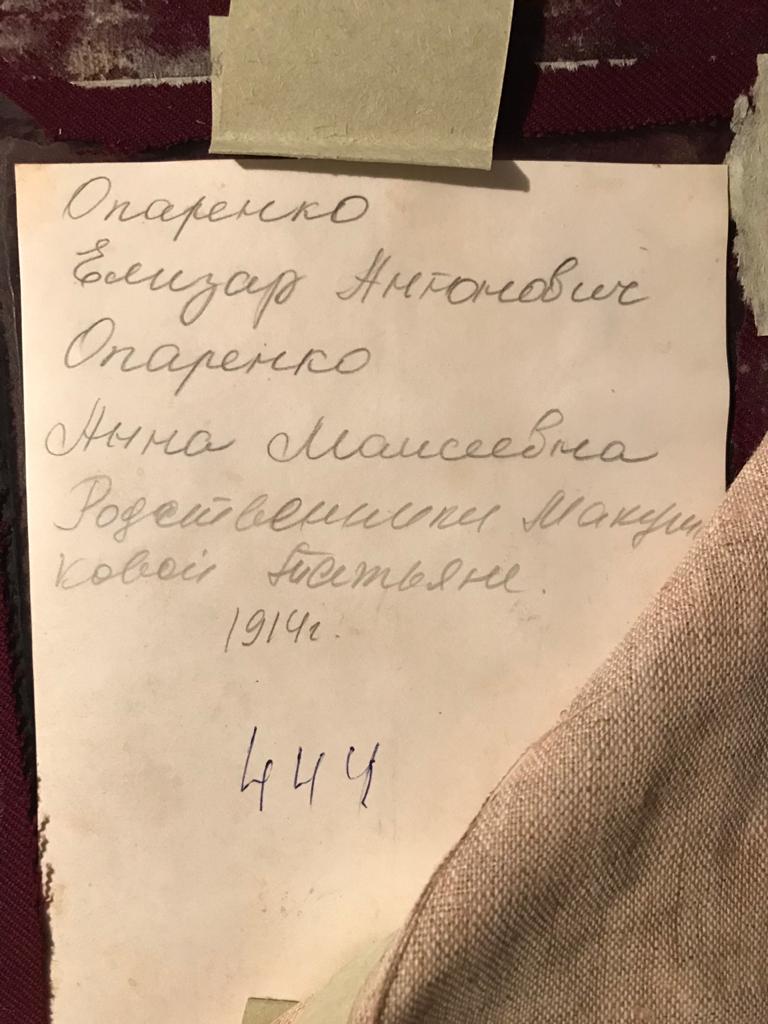 Опаренко
Елизар Антонович
Опаренко
Анна Моисеевна
Родственники Макуш
ковой Татьяне.
1914г.
444